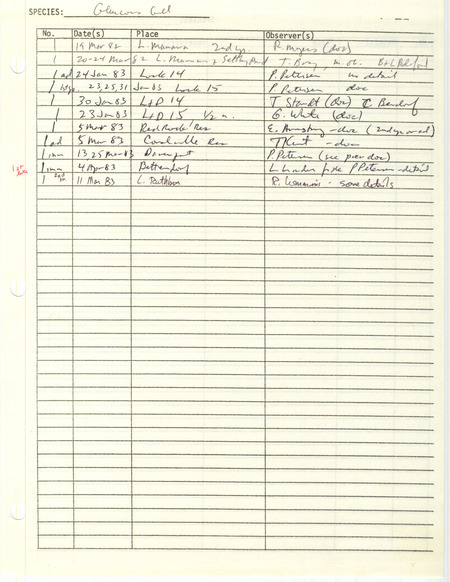 SPECIES: Glaucous Gull
No. Date(s) Place Observer(s)
1 19 Mar 82 L. Manawa 2nd yr. R. Myers (doc)
1 20-29 Mar 82 L. Manawa & Settling Pond T. Bray, m. ob. B+L Padelford
1 ad 24 Jan 83 Lock 14 P. Petersen no detail
1 23, 25, 31 Jan 83 Lock 15 P. Petersen doc
1 30 Jan 83 L+D 14 T Staudt (doc) C. Bendorf
1 23 Jan 83 L+D 15 1/2 a. G. White (doc)
1 5 Mar 83 Red Rock Res E. Armstrong - doc (2nd yr or ad)
1 ad 5 Mar 83 Coralville Res T Kent - doc
1 imm 13, 25 Mar 83 Davenport P Petersen (see prev doc)
1 imm 4 Apr 83 Bettendorf P Petersen - details
1 2nd yr. 11 Mar 83 L. Rathbun R. - some details